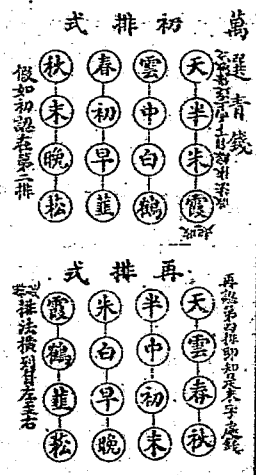 萬選青錢
初排式
天半朱霞
雲中白鶴
春初早韭
秋末晚菘
假如初認在第二排
再排式
再認第四排即知是末字處錢
天雲春秋
半中初末
朱白早晚
霞鶴韭菘
排法橫列自左至右